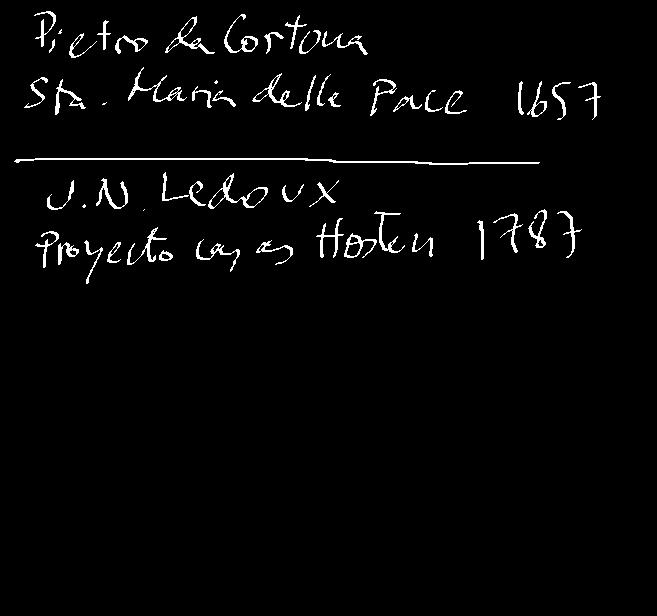 Pietro da Cortona
Sta. Maria delle Pace 1657
J.N. Ledoux
Proyecto casas Hosten 1787